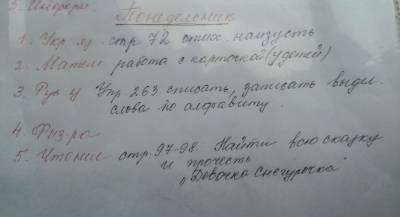 5. Информ.
Понедельник
1. Укр. яз. стр 72 стих. наизусть
2. Матем работа с карточкой (у детей)
3. Рус. яз Упр 263 списать, записать выдел.
слова по алфавиту.
4. Физ-ра
5. Чтение стр. 97-98. Найти всю сказку
и прочесть
„Девочка Снегурочка"